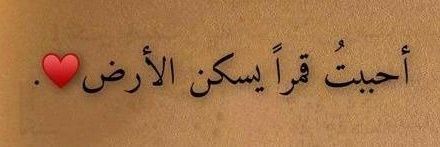 أحببتُ قمراً يسكن الأرض♥️.